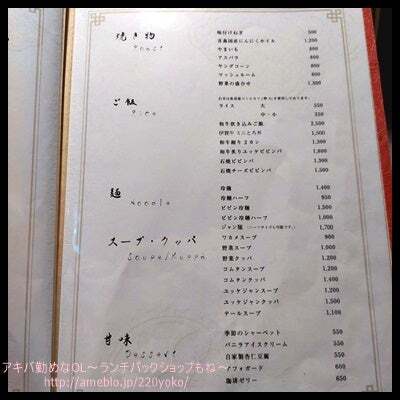 焼き物
Roast
味付けねぎ 500
青森国産にんにくホイル 1,200
やまいも 800
アスパラ 800
ヤングコーン 800
マッシュルーム 800
野菜の盛合せ 1,300
ご飯
Rice
ライス 大 350
中・小 250
和牛炊き込みご飯
和牛握り2カン 1,300
和牛炙りユッケビビンバ
石焼ビビンバ
石焼チーズビビンバ
麺
Noodle
冷麺 1,400
冷麺ハーフ
ビビン冷麺 1,500
ビビン冷麺ハーフ 1,000
ジャン麺 1,700
スープ・クッパ
ワカメスープ 800
野菜スープ 1,000
野菜クッパ 1,200
コムタンスープ 1,200
コムタンクッパ 1,400
ユッケジャンスープ 1,200
ユッケジャンクッパ 1,500
テールスープ 1,100
甘味
Dessert
季節のシャーベット 550
バニラアイスクリーム 550
自家製杏仁豆腐 550
アフォガード 660
珈琲ゼリー 650
アキバ勤めなOL～ランチパックショップもね～
http://ameblo.jp/220yoko/